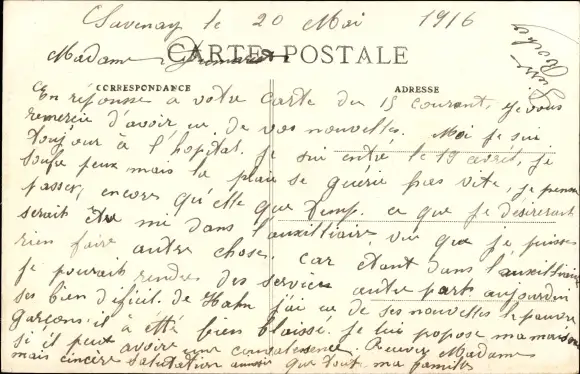 Savenay le 20 Mai 1916
CARTE POSTALE
Madame
CORRESPONDANCE
ADRESSE
En réponsse a votre Carte du 15 courant, je vous
remercie d'avoir eu de vos nouvelles. Moi je suis
toujour à l'hopital. Je sui entré le 19 avril, je
soufre peux mais la plaie se guérie pas vite, je pense
passer, encores qu'elle que temp. ce que je désirerais
serait être mi dans l'auxilliaire, vue que je puisse
rien faire autre chose. Car étant dans l'auxilliaire
je pourait rendre des services autre part aujourdui
ses bien dificil. de j'ai eu de ses nouvelles le pauvre
garçons il à etté bien blaisse. Je lui propose ma maison
si il peut avoire une convalessence. Recevez Madame
mais cincère salutation que toute ma famille